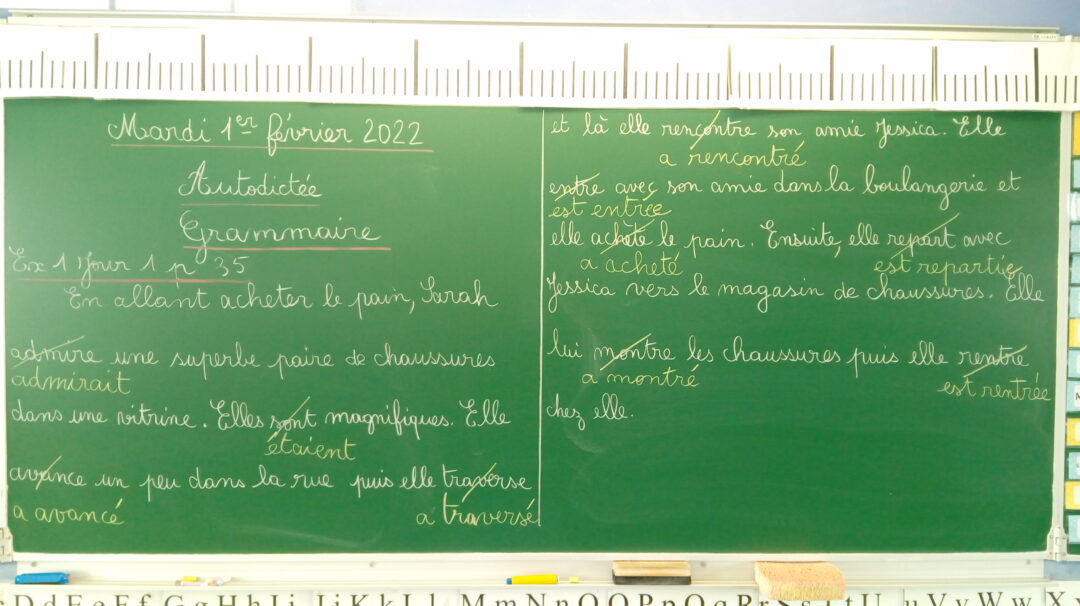 Mardi 1er février 2022
Autodictée
Grammaire
Ex 1 Jour 1 p 35
En allant acheter le pain, Sarah
admire une superbe paire de chaussures
admirait
dans une vitrine. Elles sont magnifiques. Elle
étaient
avance un peu dans la rue puis elle traverse
a avancé a traversé
et là elle rencontre son amie Jessica. Elle
a rencontré
entre avec son amie dans la boulangerie et
est entrée
elle achète le pain. Ensuite, elle repart avec
a acheté est repartie
Jessica vers le magasin de chaussures. Elle
lui montre les chaussures puis elle rentre
a montré est rentrée
chez elle.
D d E e F f G g H h I i J j K k L l M m N n O O P p Q q R r S s T t U u V v W w X